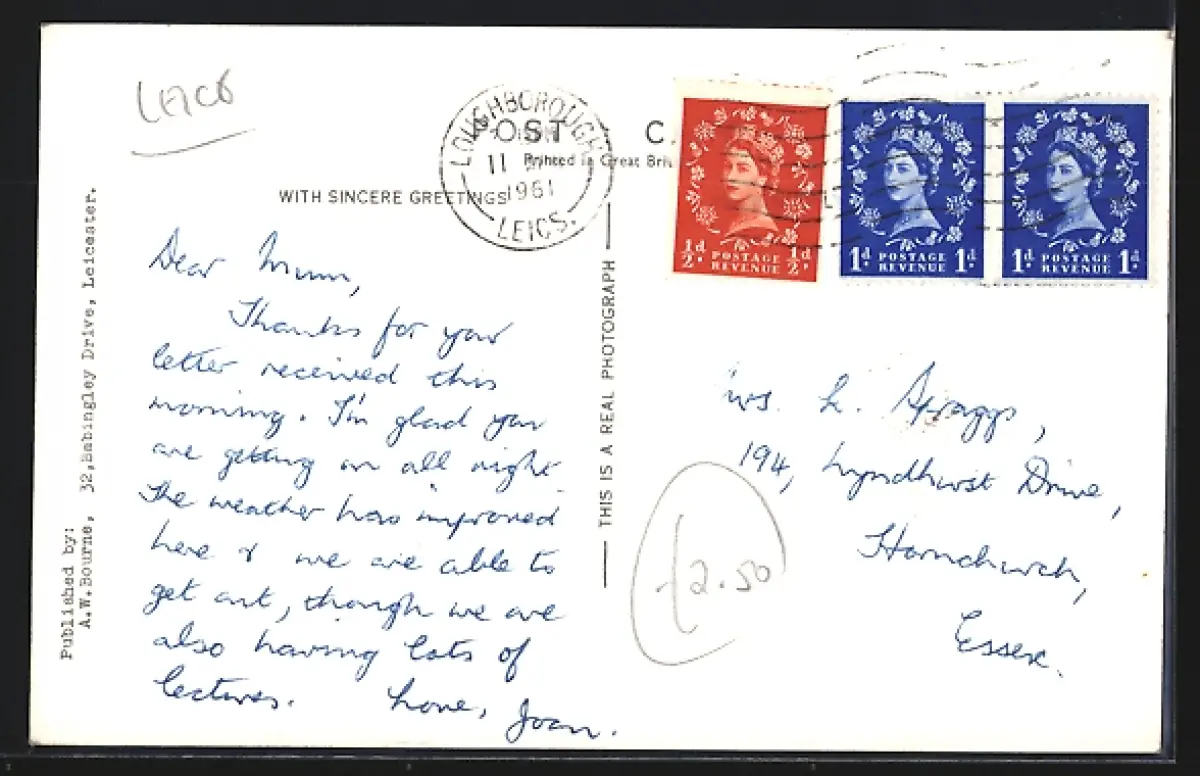 LEICS
LOUGHBOROUGH
11
1961
LEICS.
POST C.
Printed in Great Brit
WITH SINCERE GREETINGS
½d. POSTAGE REVENUE ½d.
1d. POSTAGE REVENUE 1d.
1d. POSTAGE REVENUE 1d.
Published by:
A.W.Bourne, 32,Babingley Drive, Leicester.
Dear Mum,
Thanks for your
letter received this
morning. I'm glad you
are getting on all right.
The weather has improved
here & we are able to
get out, though we are
also having lots of
lectures. Love, Joan.
THIS IS A REAL PHOTOGRAPH
Mrs. L. Spraggs,
194, Lyndhurst Drive,
Hornchurch,
Essex.
£2.50